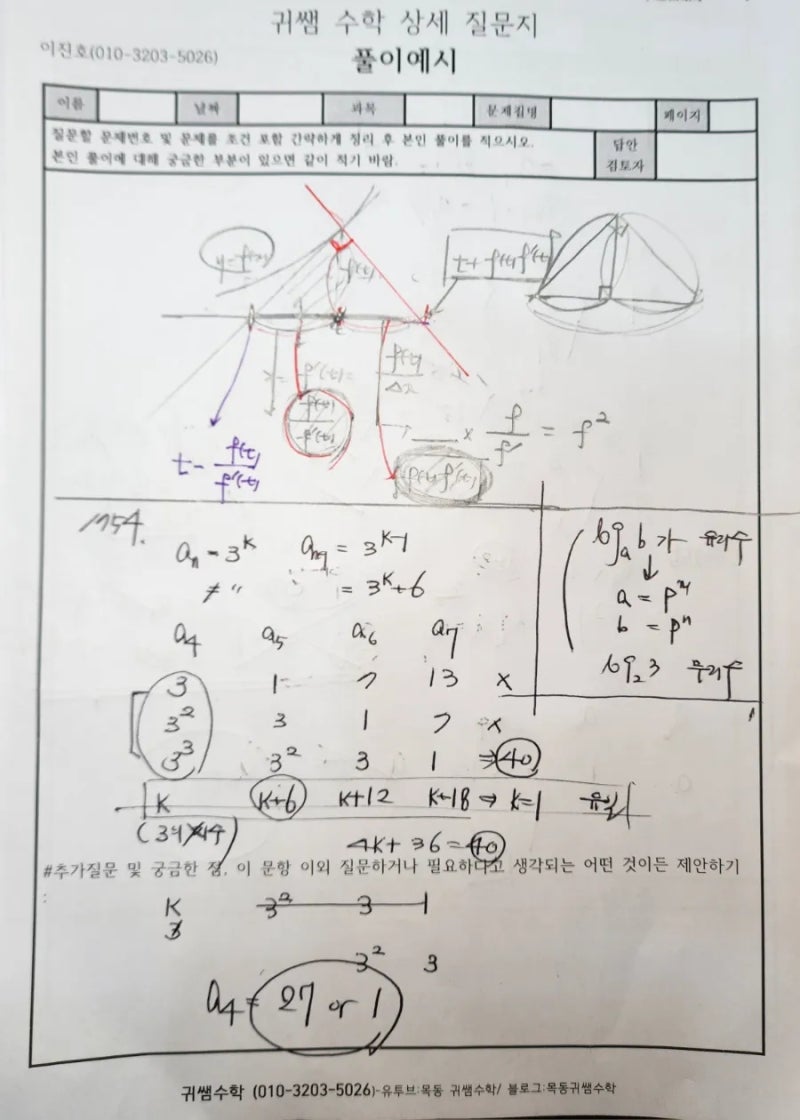 귀쌤 수학 상세 질문지
이진호(010-3203-5026)
풀이예시
이름 날짜 과목 문제집명 페이지
질문할 문제번호 및 문제를 조건 포함 간략하게 정리 후 본인 풀이를 적으시오.
본인 풀이에 대해 궁금한 부분이 있으면 같이 적기 바람.
답안
검토자
y=f(x)
f(t)
t+f(t)f'(t)
f'(t)=
f(t)/Δx
f(t)/f'(t)
× f/f' = f²
t - f(t)/f'(t)
f(t)f'(t)
1154.
aₙ = 3^K aₙ₊₁ = 3^K-1
≠ 〃 = 3^K+6
log_a b가 유리수
↓
a = p^m
b = p^n
log₂3 무리수
a₄ a₅ a₆ a₇
3 1 7 13 ×
3² 3 1 7 ×
3³ 3² 3 1 ⇒ 40
K K+6 K+12 K+18 ⇒ K=1 유일
4K+36=40
#추가질문 및 궁금한 점, 이 문항 이외 질문하거나 필요하다고 생각되는 어떤 것이든 제안하기
K 3² 3 1
3
3² 3
a₄= 27 or 1
귀쌤수학 (010-3203-5026)-유투브:목동 귀쌤수학/ 블로그:목동귀쌤수학